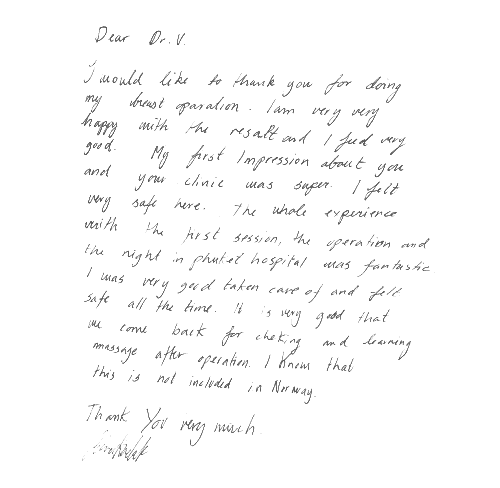 Dear Dr. V.
I would like to thank you for doing
my breast oparation. I am very very
happy with the resalt and I feed very
good. My first Impression about you
and your clinic was super. I felt
very safe here. The whole experience
with the first session, the operation and
the night in phuket hospital was fantastic.
I was very good taken care of and felt
safe all the time. It is very good that
we come back for cheking and learning
massage after operation. I know that
this is not included in Norway.
Thank You very much.